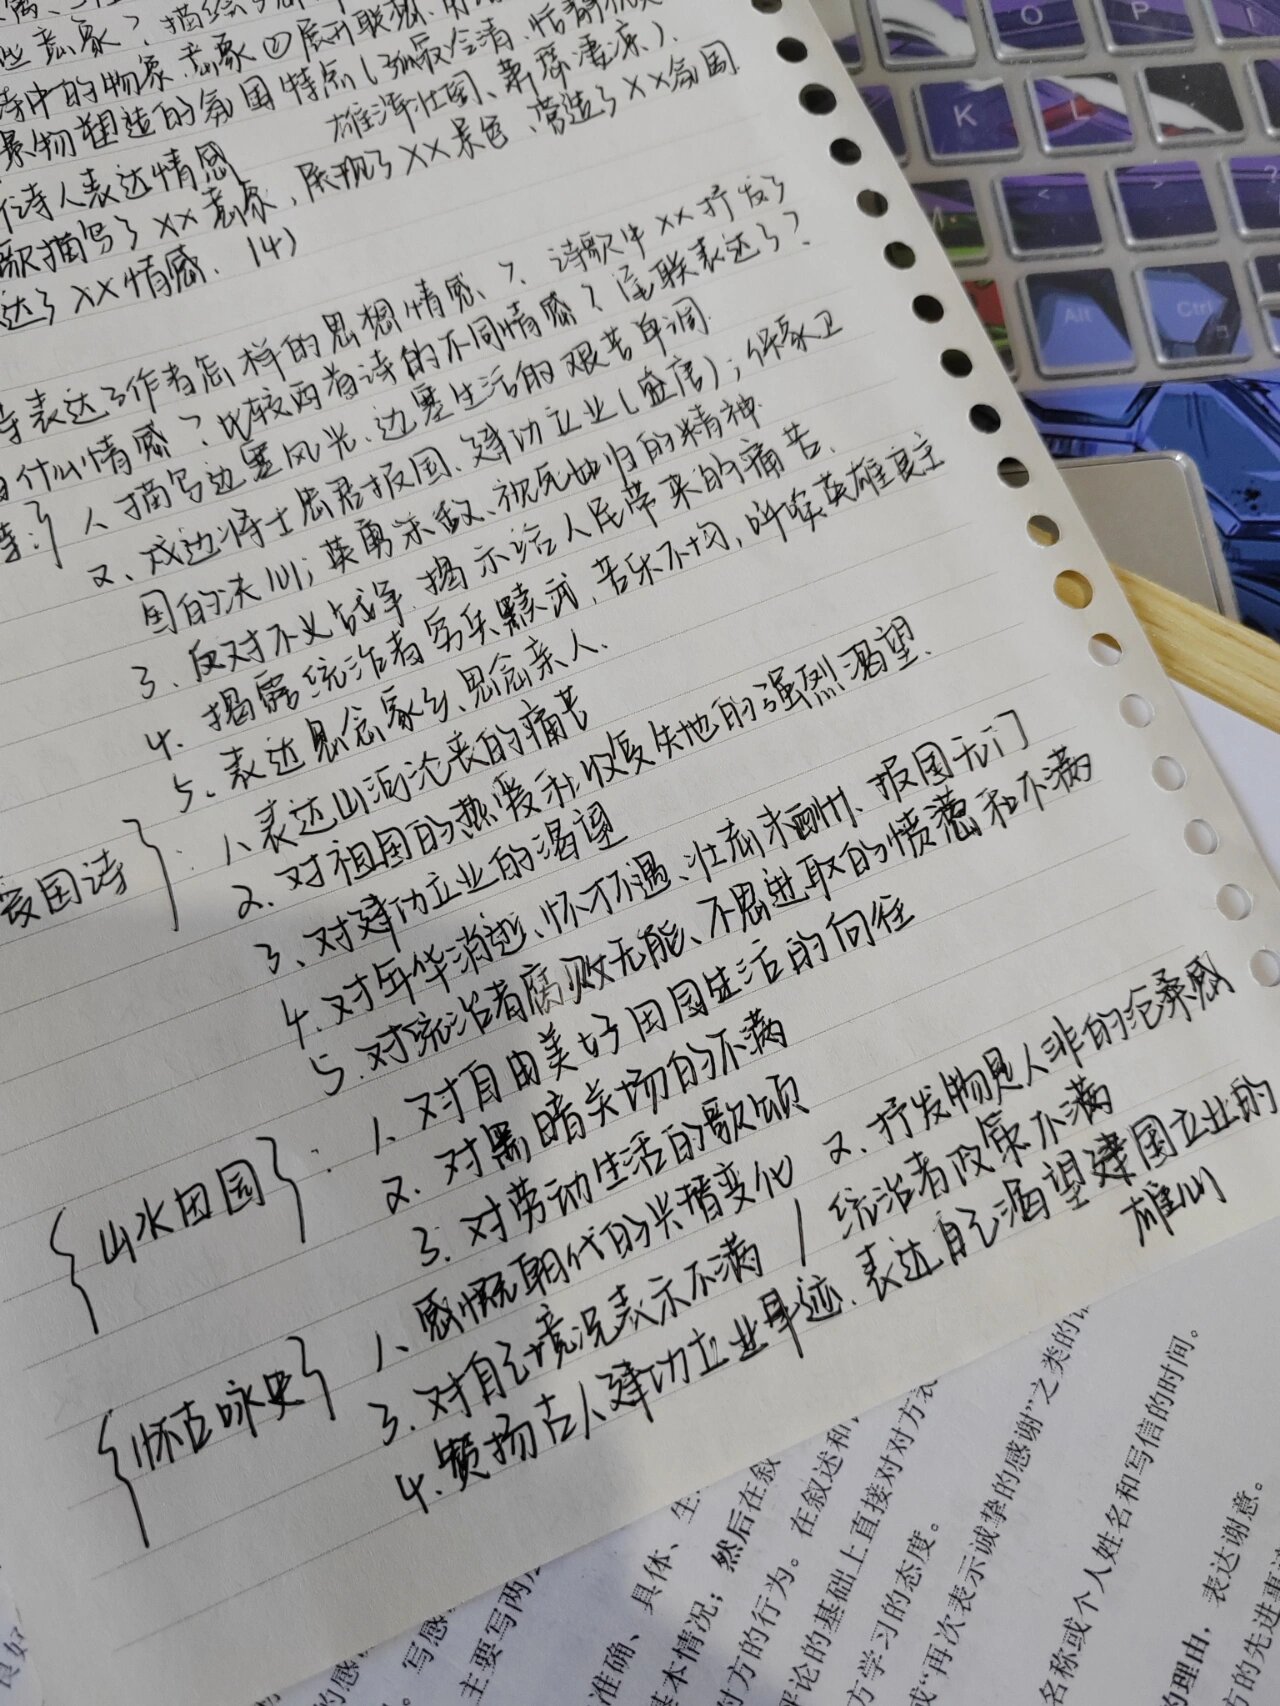 些意象？描绘
诗中的物象、意象②展开联想、
景物塑造的氛围特点(孤寂冷清、恬静优美
雄浑壮阔、萧瑟凄凉).
诗人表达情感
歌描写了XX意象，展现了XX景色、营造了XX氛围
达了XX情感. (4)
诗表达了作者怎样的思想情感、？诗歌中XX抒发了
什么情感？比较两首诗的不同情感？尾联表达了？
1、描写边塞风光、边塞生活的艰苦单调.
2、戍边将士思君报国、建功立业(盛唐)；保家卫
国的决心；英勇杀敌、视死如归的精神.
3、反对不义战争，揭示给人民带来的痛苦、
4、揭露统治者穷兵黩武，苦乐不均，呼唤英雄良主
5、表达思念家乡、思念亲人.
爱国诗
1、表达山河沦丧的痛苦
2、对祖国的热爱和收复失地的强烈渴望.
3、对建功立业的渴望
4、对年华消逝、怀才不遇、壮志未酬、报国无门
5、对统治者腐败无能、不思进取的愤懑和不满
山水田园：
1、对自由美好田园生活的向往
2、对黑暗官场的不满
3、对劳动生活的歌颂
怀古咏史
1、感慨朝代的兴替变化 2、抒发物是人非的沧桑感
3、对自己境况表示不满/统治者政策不满
4、赞扬古人建功立业事迹、表达自己渴望建国立业的
雄心
O P
K L
< >
Alt Ctrl
具体、生
准确、写感
主要写两
本情况；然后在叙
对方的行为。在叙述和
评论的基础上直接对对方表
方学习的态度。
或“再次表示诚挚的感谢”之类的
名称或个人姓名和写信的时间。
的理由，表达谢意。
方的先进事